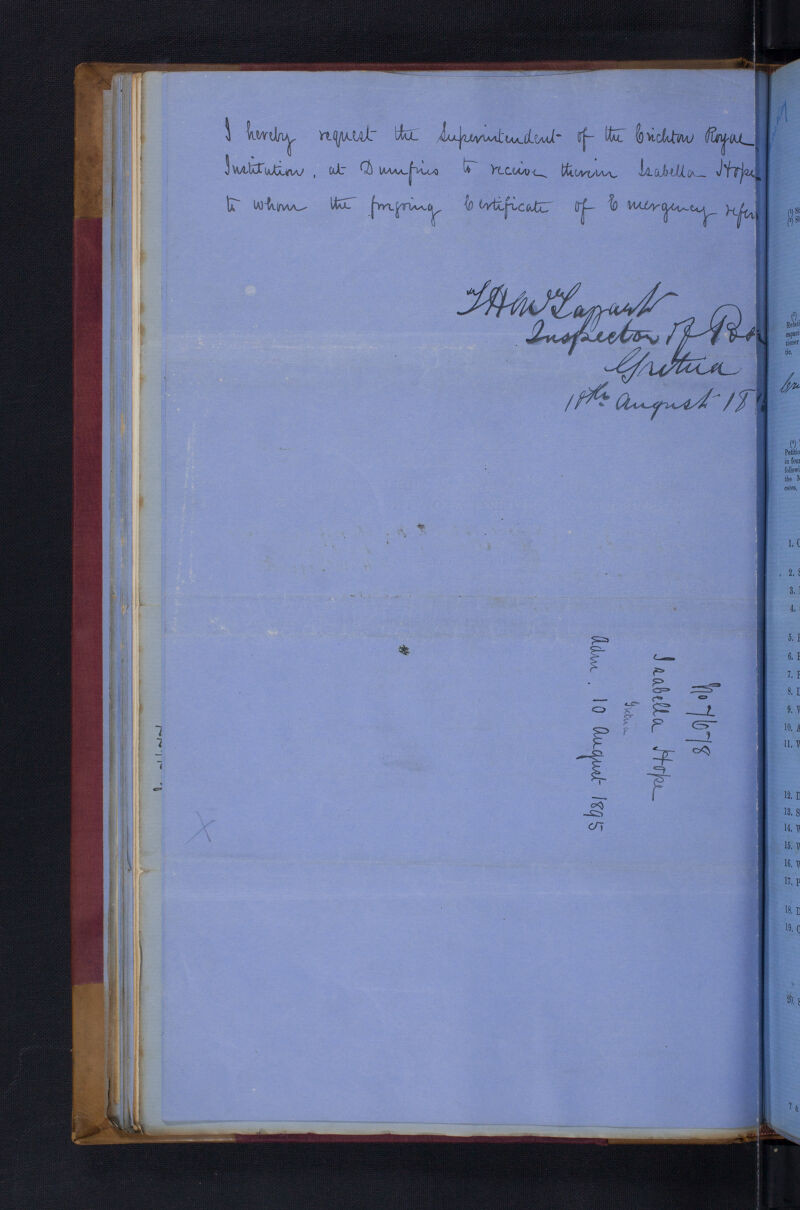 I hereby request the Superintendent of the Crichton Royal
Institution, at Dumfries to receive therein Isabella Hope
to whom the foregoing Certificate of Emergency refer
Inspector of Poo
Gretna
10th August 18
No 7678
Isabella Hope
Gretna
adm. 10 August 1895
X
1.
2. S
3.
4.
5.
6.
7.
8.
9.
10.
11.
12. D
13. S
14. W
15.
16.
17. P
18. D
19.
20. S